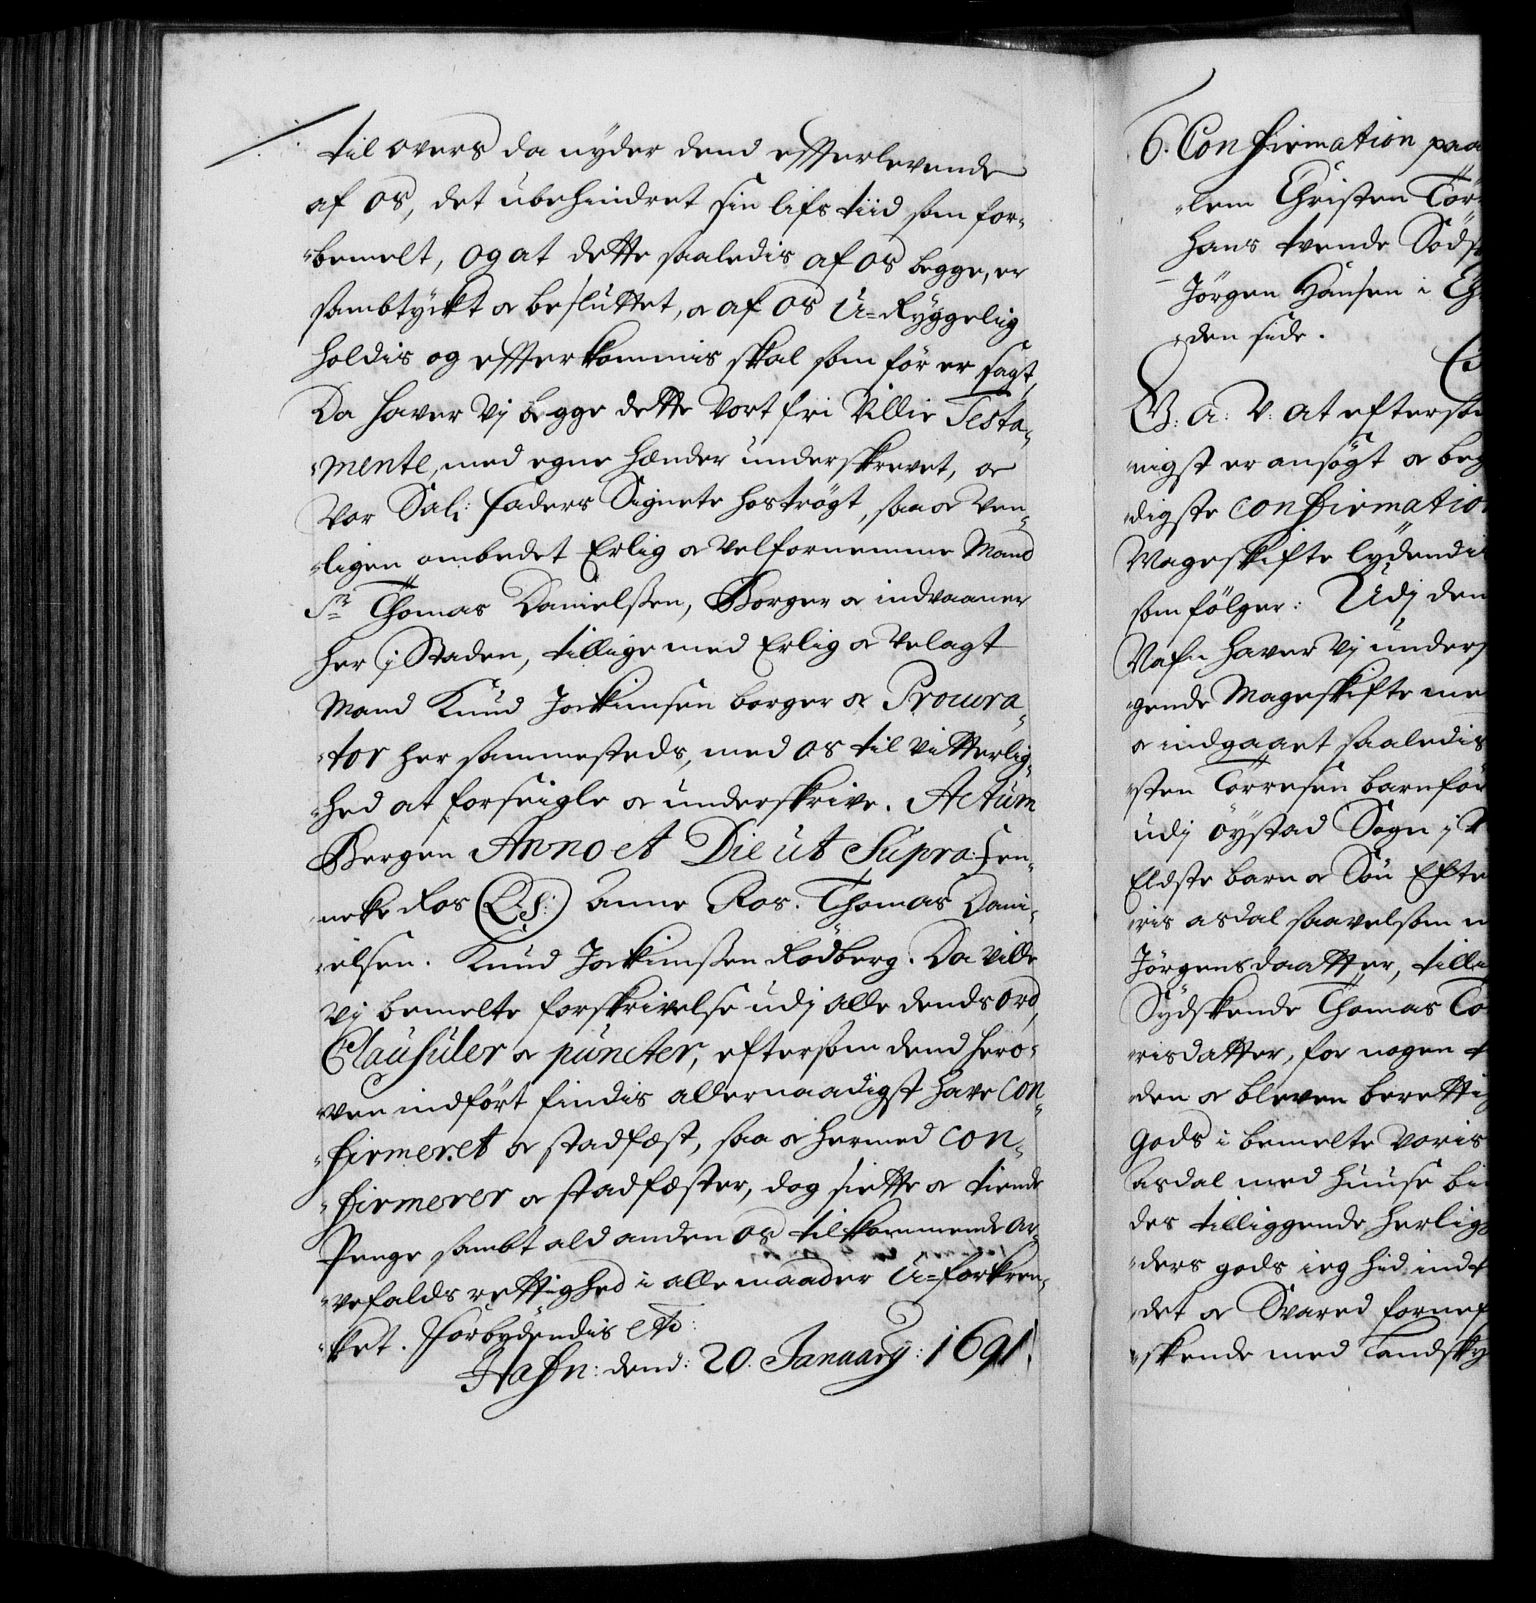 til overs da nyder dend effterlevende
af os, det ubehindret sin lifs tiid som for-
bemelt, og at dette saaledis af os begge, er
sambtyckt & besluttet, & af os U=Ryggelig
holdis og effterkommis skal som för er sagt,
Da haver Vj begge dette Vort fri Villie Testa-
mente, med egne hænder underskrevet, &
Vor Sal: Faders Signete hoströgt, saa & Ven-
ligen ombedet Erlig & Velfornemme Mand
Sr Thomas Danielssen, Borger & indvaaner
her j Staden, tillige med Erlig & Velagt
Mand Knud Jockimsen borger & Procura-
tor her sammesteds, med os til Vitterlig-
hed at forseigle & underskrive. Actum
Bergen Anno et Die ut Supra. Hen-
neke Ros (L.S.) Anne Ros. Thomas Dani-
elsen. Knud Jockimssen Rödberg. Da Ville
Vj bemelte forskrivelse udj alle dends ord,
Clausuler & puncter, eftersom dend hero-
ven indfört findis allernaadigst have con-
firmeret & stadfæst, saa & hermed con-
firmerer & stadfæster, dog siette & tiende
Penge sambt ald anden os tilkommende ar-
vefalds rettighed i alle maader U=forkren-
ket. Forbydendis etc:
Hafn: dend: 20. January: 1691.
6. Confirmation paa
lem Christen Tör
hans tvende Södsk
Jörgen Hansen i Ch
den side.
G. a: V: at eftersom
nigst er ansögt & beg
digste confirmation
Mageskifte lydendis
som fölger: Udj den
Nafn haver Vj unders
gende Mageskifte me
& indgaaet saaledis
sten Törresen barnföd
udj öystad Sogn j
Eldste barn & Sön Efte
ris asdal saavelsom
Jörgensdaatter, tilli
Sydskende Thomas Tö
risdatter, for nogen t
den & bleven berettig
Gods i bemelte Voris
asdal med huuse b
des tilliggende herlig
ders gods ieg hid indt
det & Svared fornef
skende med Landsky